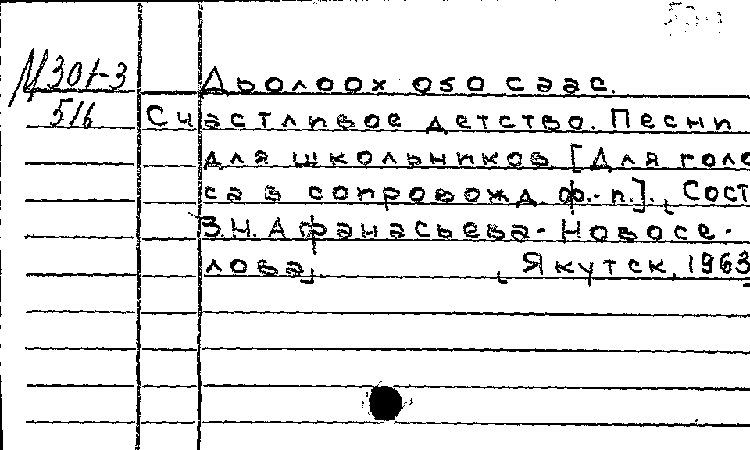 М301-3
516
Дьолоох о5о саас.
Счастливое детство. Песни
для школьников [Для голо
са в сопровожд. ф.-п.]. Сост
З.Н. Афанасьева-Новосе-
лова]. [Якутск, 1963